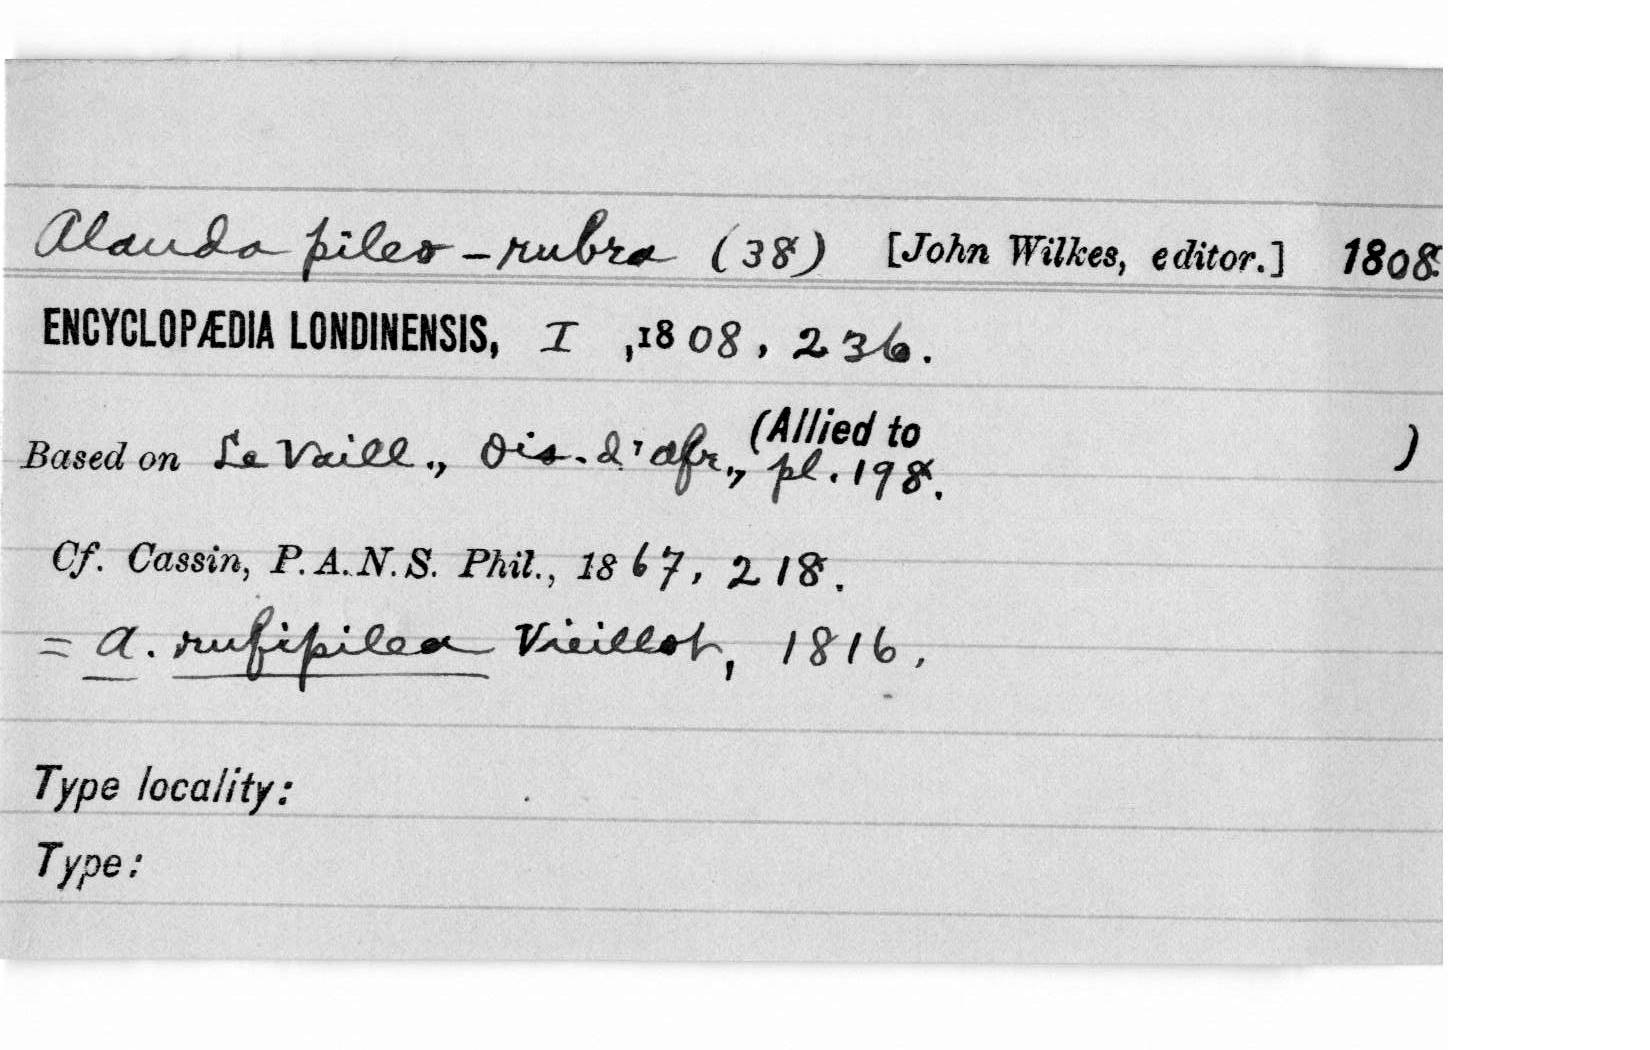 Alauda pileo-rubra (38) [John Wilkes, editor.] 1808.
ENCYCLOPÆDIA LONDINENSIS, I , 1808, 236.
(Allied to )
Based on Le Vaill., Ois. d'Afr., pl. 198.
Cf. Cassin, P. A. N. S. Phil., 1867, 218.
= A. rufipilea Vieillot, 1816.
Type locality:
Type: